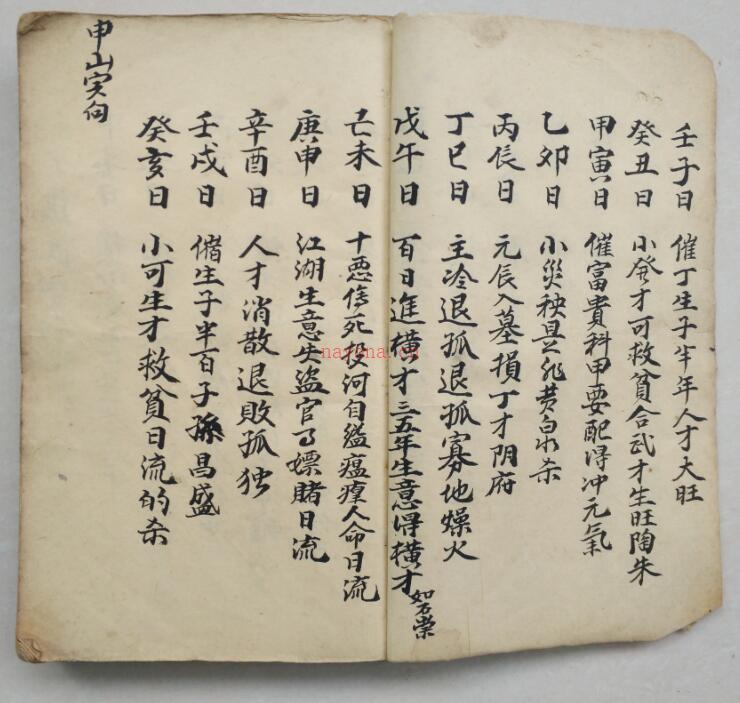 壬子日 催丁生子半年人才大旺
癸丑日 小發才可救貧合武才生旺陶朱
甲寅日 催富貴科甲要配得冲元氣
乙卯日 小災殃是非黄泉水杀
丙辰日 元辰入墓損丁才阴府
丁巳日 主冷退孤退孤寡地燥火
戊午日 百日進橫才三五年生意得橫才
己未日 十悪 死投河自缢瘟瘟人命日流
庚申日 江湖生意失盜官 嫖賭日流
辛酉日 人才消散退敗孤独
壬戌日 生子半百子孫昌盛
癸亥日 小可生才救貧日流的杀
申山寅向